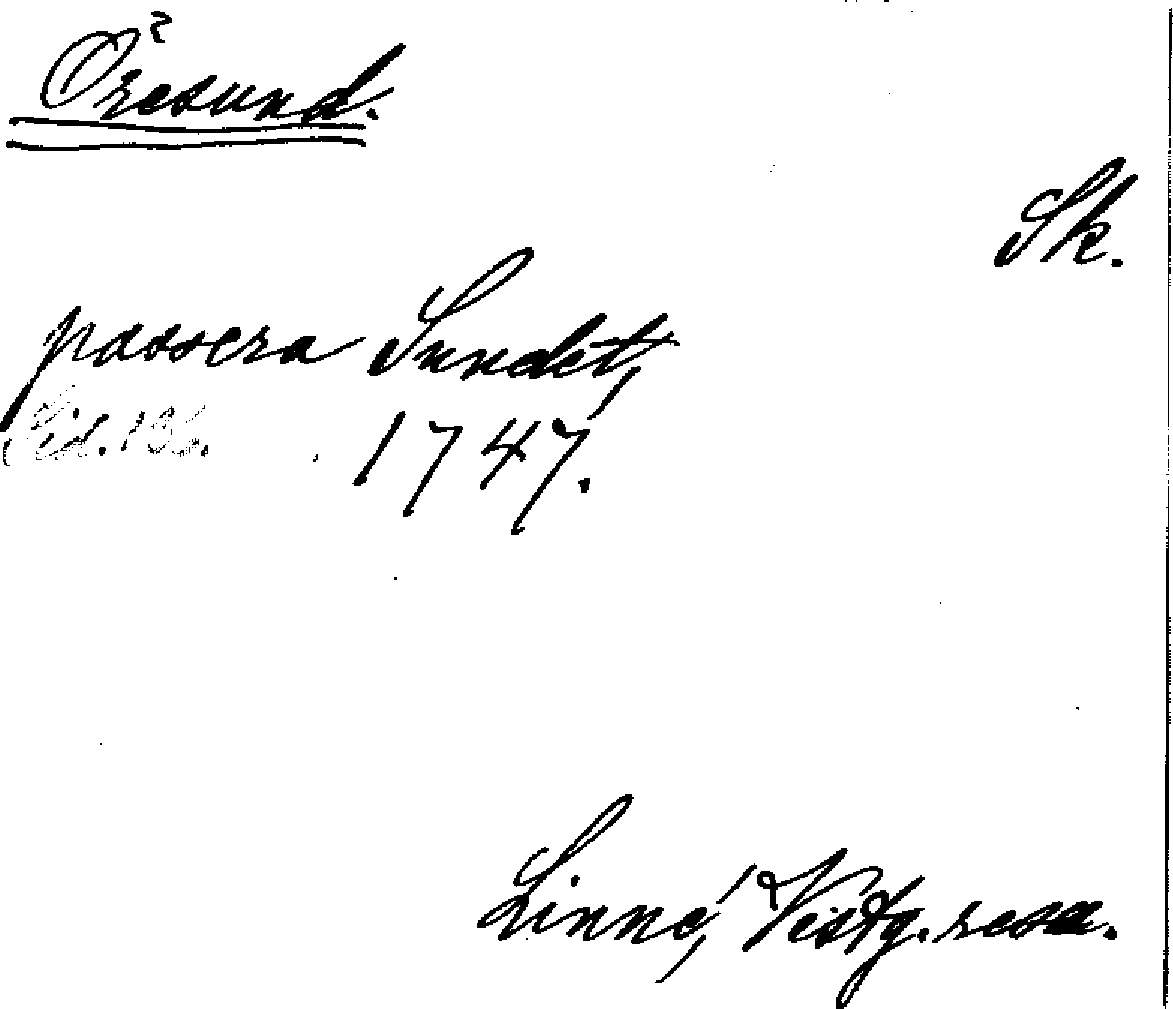 Öresund.
Sk.
passera Sundet,
Sid. 196. 1747.
Linné, Vestg. resa.